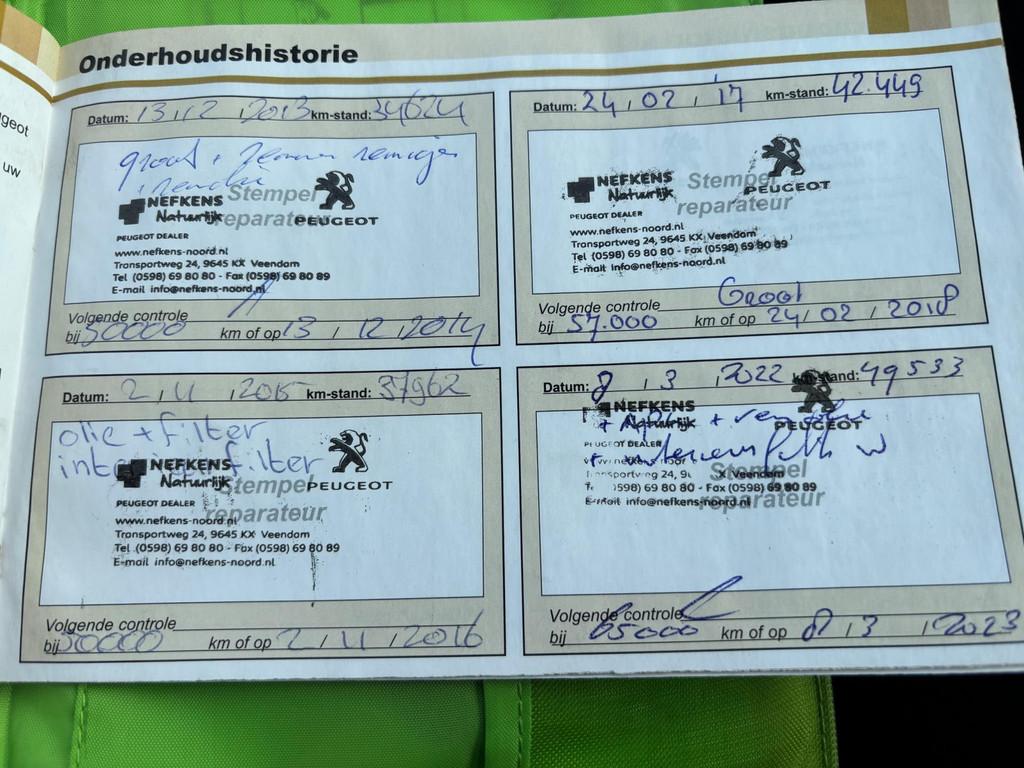 Onderhoudshistorie
geot
uw
Datum: 13 / 12 / 2013 km-stand: 34624
groot +
NEFKENS
Natuurlijk
Stempel
reparateur
PEUGEOT
PEUGEOT DEALER
www.nefkens-noord.nl
Transportweg 24, 9645 KX Veendam
Tel (0598) 69 80 80 - Fax (0598) 69 80 89
E-mail info@nefkens-noord.nl
Volgende controle
bij 50000 km of op 13 / 12 / 2014
Datum: 24 / 02 / '17 km-stand: 42.449
NEFKENS
Natuurlijk
Stempel
reparateur
PEUGEOT
PEUGEOT DEALER
www.nefkens-noord.nl
Transportweg 24, 9645 KX Veendam
Tel (0598) 69 80 80 - Fax (0598) 69 80 89
E-mail info@nefkens-noord.nl
Volgende controle Groot
bij 57.000 km of op 24 / 02 / 2018
Datum: 2 / 11 / 2015 km-stand: 37962
olie + filter
filter
NEFKENS
Natuurlijk
Stempel
reparateur
PEUGEOT
PEUGEOT DEALER
www.nefkens-noord.nl
Transportweg 24, 9645 KX Veendam
Tel (0598) 69 80 80 - Fax (0598) 69 80 89
E-mail info@nefkens-noord.nl
Volgende controle
bij 50000 km of op 2 / 11 / 2016
Datum: 8 / 3 / 2022 km-stand: 49533
NEFKENS
Natuurlijk
PEUGEOT
PEUGEOT DEALER
Stempel
reparateur
Veendam
598) 69 80 80 - Fax (0598) 69 80 89
E-mail info@nefkens-noord.nl
Volgende controle
bij 65000 km of op 8 / 3 / 2023